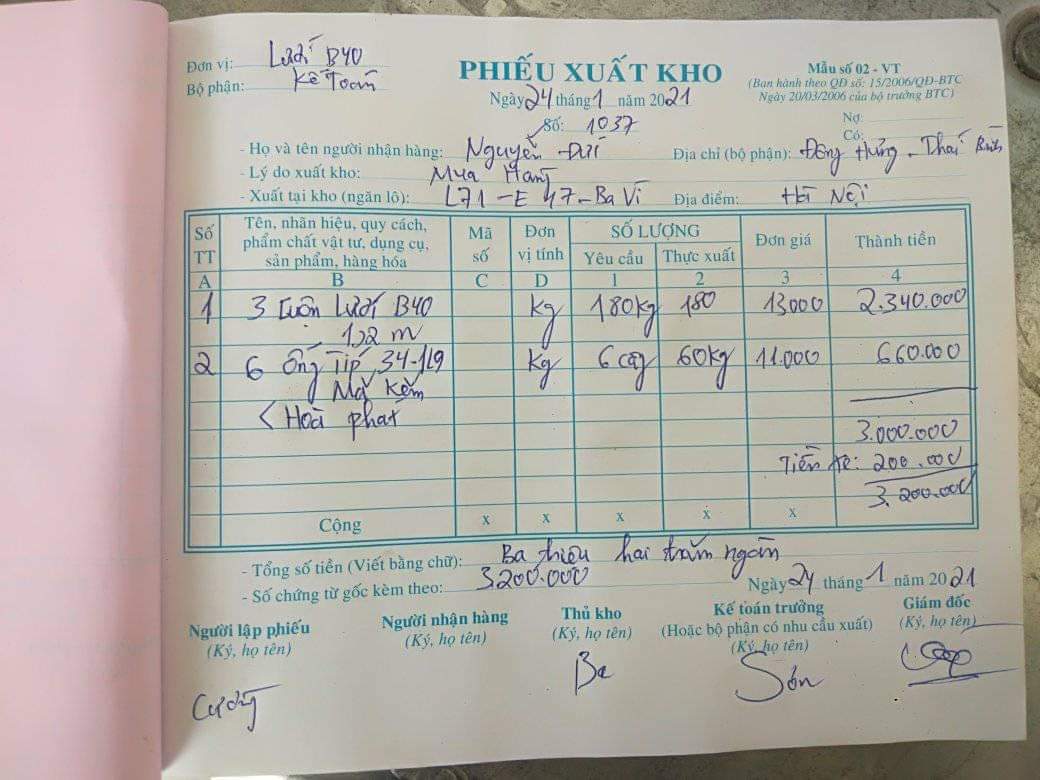 Đơn vị: Lưới B40
Bộ phận: Kế Toán
PHIẾU XUẤT KHO
Ngày 24 tháng 1 năm 2021
Số: 1037
Mẫu số 02 - VT
(Ban hành theo QĐ số: 15/2006/QĐ-BTC
Ngày 20/03/2006 của bộ trưởng BTC)
Nợ:
Có:
- Họ và tên người nhận hàng: Nguyễn Địa chỉ (bộ phận): Đông Hưng - Thái Bình
- Lý do xuất kho: Mua Hàng
- Xuất tại kho (ngăn lô): L71 - E 47 - Ba Vì Địa điểm: Hà Nội
Số TT Tên, nhãn hiệu, quy cách, phẩm chất vật tư, dụng cụ, sản phẩm, hàng hóa Mã số Đơn vị tính SỐ LƯỢNG Đơn giá Thành tiền
Yêu cầu Thực xuất
A B C D 1 2 3 4
1 3 cuộn Lưới B40 kg 180kg 180 13000 2.340.000
1,2 m
2 6 ống Típ 34-1,9 kg 6 cây 60kg 11.000 660.000
Mạ kẽm
< Hoà phát
3.000.000
Tiền xe: 200.000
3.200.000
Cộng x x x x x
- Tổng số tiền (Viết bằng chữ): Ba triệu hai trăm ngàn
- Số chứng từ gốc kèm theo: 3200.000
Ngày 24 tháng 1 năm 2021
Người lập phiếu
(Ký, họ tên)
Người nhận hàng
(Ký, họ tên)
Thủ kho
(Ký, họ tên)
Kế toán trưởng
(Hoặc bộ phận có nhu cầu xuất)
(Ký, họ tên)
Giám đốc
(Ký, họ tên)
Cường
Ba
Sơn